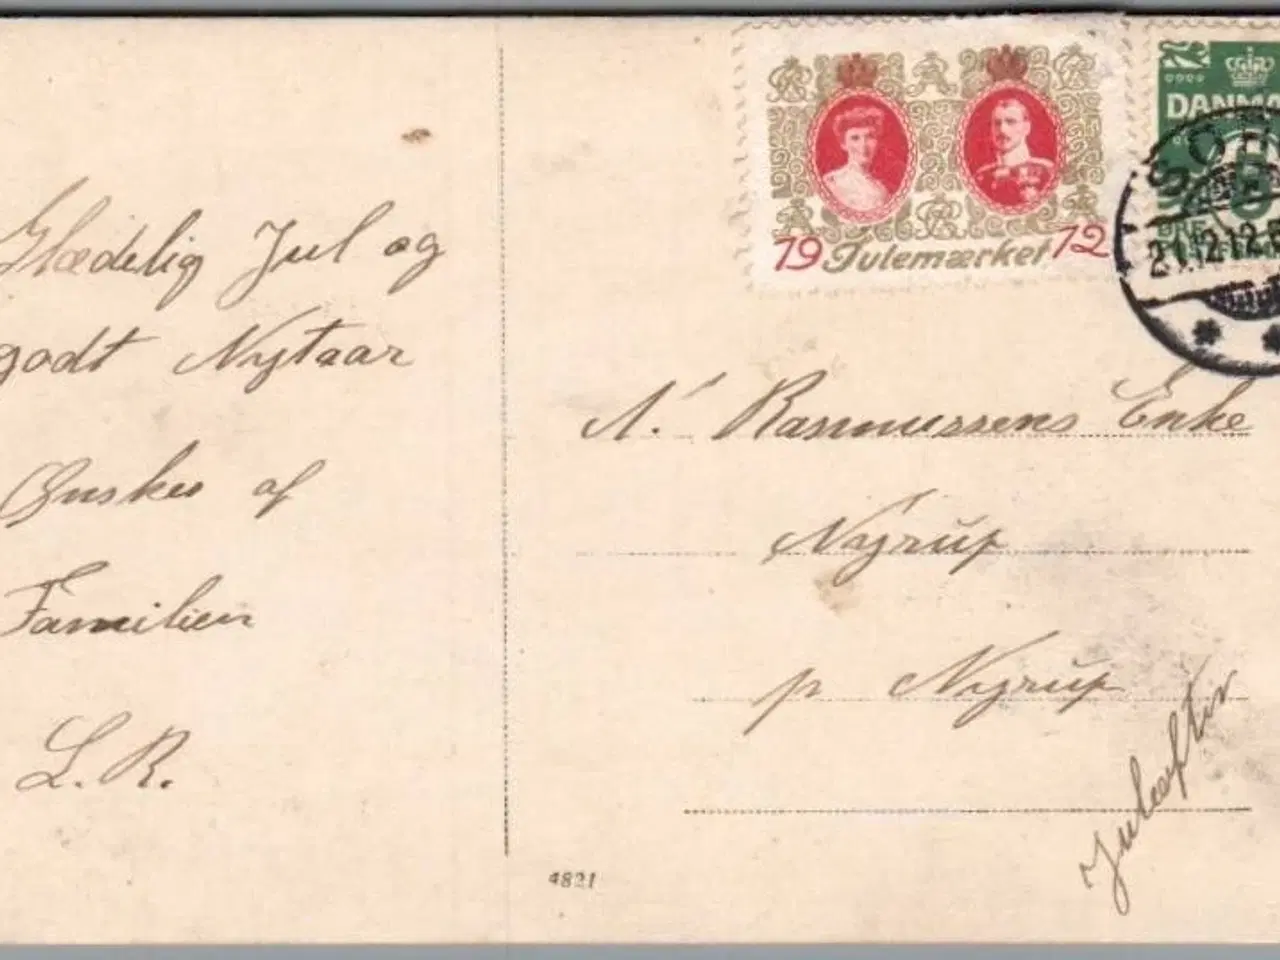 Glædelig Jul og
godt Nytaar
Ønskes af
Familien
L. R.
19 Julemærket 12
DANMA
5
ØRE
SOR
21.12.12.
N. Rasmussens Enke
Nyrup
pr Nyrup
Juleaften
4821